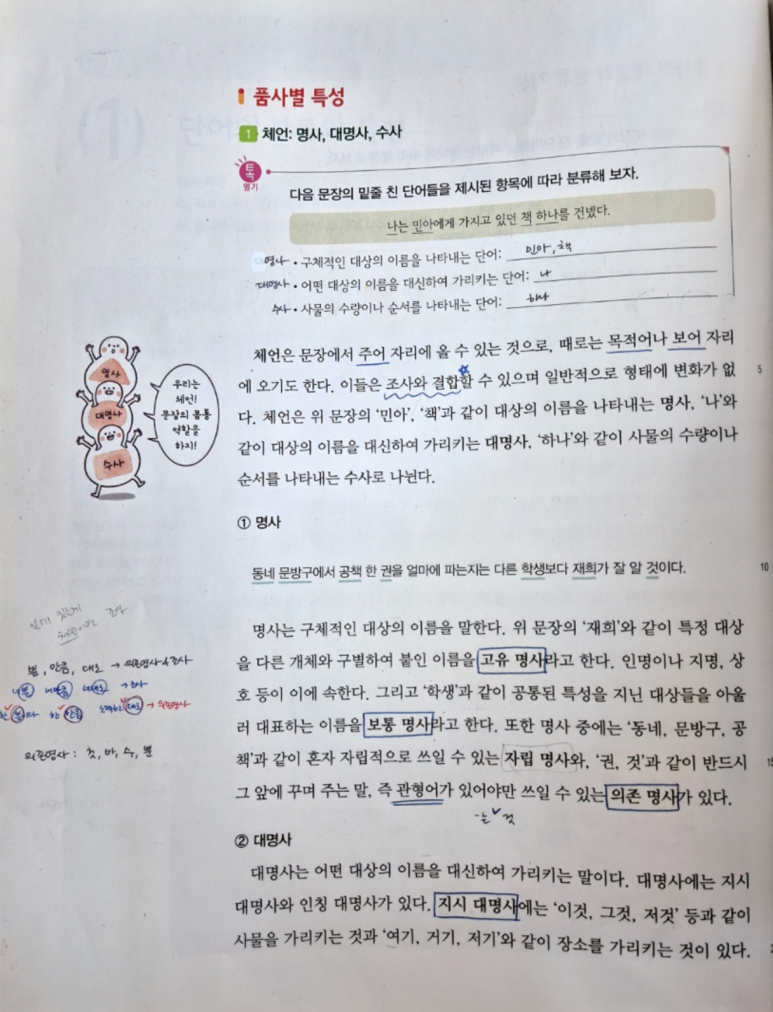 품사별 특성
1 체언: 명사, 대명사, 수사
톡
열기
다음 문장의 밑줄 친 단어들을 제시된 항목에 따라 분류해 보자.
나는 민아에게 가지고 있던 책 하나를 건넸다.
명사 • 구체적인 대상의 이름을 나타내는 단어: 민아, 책
대명사 • 어떤 대상의 이름을 대신하여 가리키는 단어: 나
수사 • 사물의 수량이나 순서를 나타내는 단어: 하나
명사
대명사
수사
우리는
체언!
문장의 몸통
역할을
하지!
체언은 문장에서 주어 자리에 올 수 있는 것으로, 때로는 목적어나 보어 자리
에 오기도 한다. 이들은 조사와 결합할 수 있으며 일반적으로 형태에 변화가 없
다. 체언은 위 문장의 ‘민아’, ‘책’과 같이 대상의 이름을 나타내는 명사, ‘나’와
같이 대상의 이름을 대신하여 가리키는 대명사, ‘하나’와 같이 사물의 수량이나
순서를 나타내는 수사로 나뉜다.
5
① 명사
동네 문방구에서 공책 한 권을 얼마에 파는지는 다른 학생보다 재희가 잘 알 것이다.
10
명사는 구체적인 대상의 이름을 말한다. 위 문장의 ‘재희’와 같이 특정 대상
을 다른 개체와 구별하여 붙인 이름을 고유 명사라고 한다. 인명이나 지명, 상
호 등이 이에 속한다. 그리고 ‘학생’과 같이 공통된 특성을 지닌 대상들을 아울
러 대표하는 이름을 보통 명사라고 한다. 또한 명사 중에는 ‘동네, 문방구, 공
책’과 같이 혼자 자립적으로 쓰일 수 있는 자립 명사와, ‘권, 것’과 같이 반드시
그 앞에 꾸며 주는 말, 즉 관형어가 있어야만 쓰일 수 있는 의존 명사가 있다.
-는 것
뿐, 만큼, 대로 → 의존명사&조사
→ 조사
→ 의존명사
의존명사 : 것, 바, 수, 뿐
② 대명사
대명사는 어떤 대상의 이름을 대신하여 가리키는 말이다. 대명사에는 지시
대명사와 인칭 대명사가 있다. 지시 대명사에는 ‘이것, 그것, 저것’ 등과 같이
사물을 가리키는 것과 ‘여기, 거기, 저기’와 같이 장소를 가리키는 것이 있다.